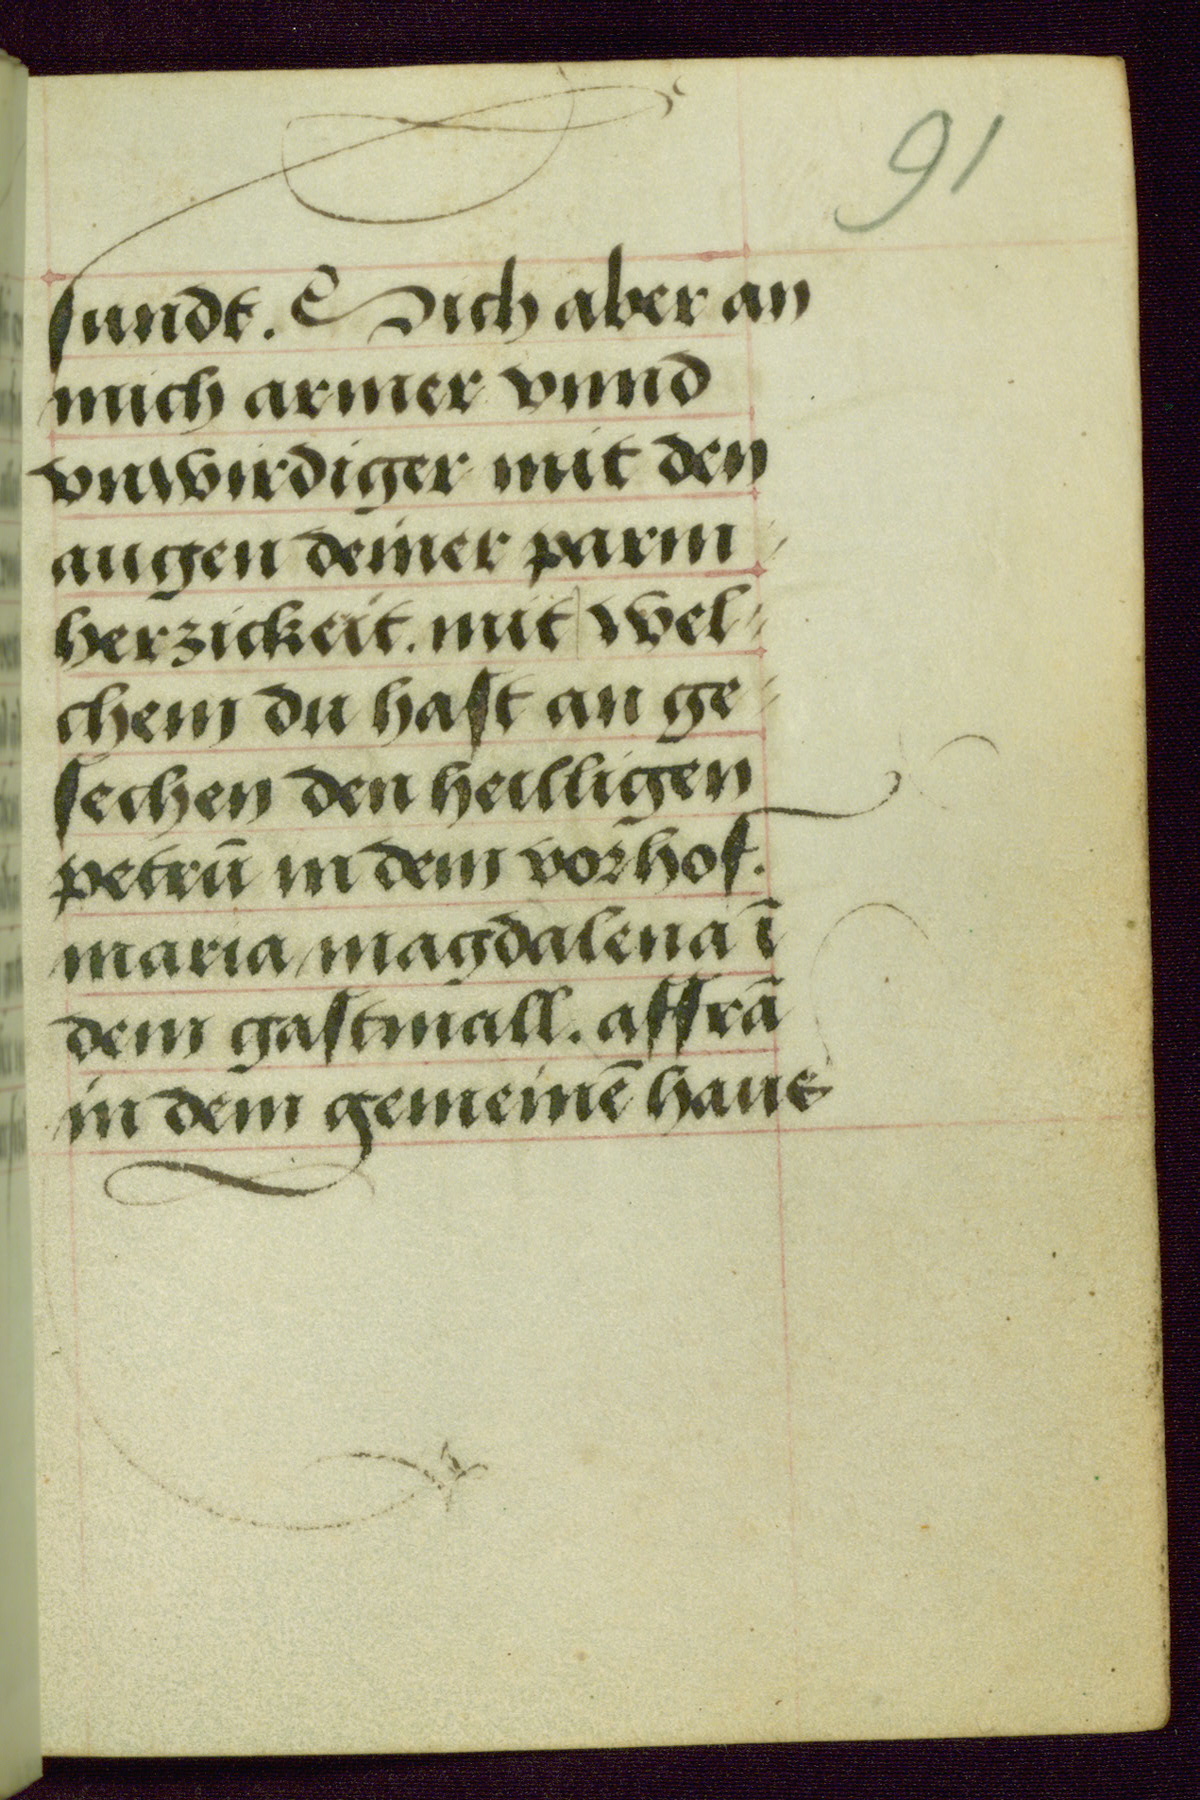 91
ſundt. Sich aber an
mich armer vnnd
vnwirdiger mit den
augen deiner parm⸗
herzickeit. mit wel⸗
chem du haſt an ge⸗
ſechen den heilligen
petrū in dem vorhof.
maria magdalena ī
dem gaſtmall. affrā
in dem gemeinē haue